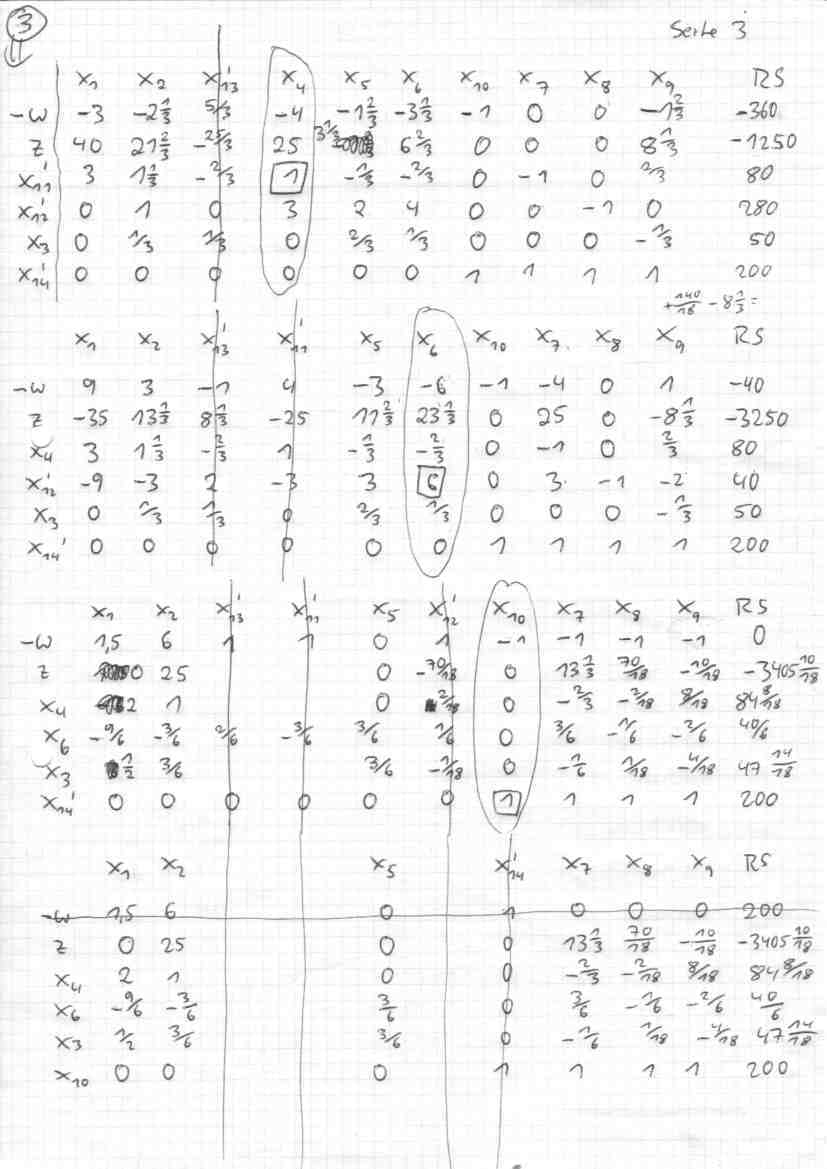 ③ Seite 3
x₁ x₂ x₁₃' x₄ x₅ x₆ x₁₀ x₇ x₈ x₉ RS
-w -3 -2⅓ 5/3 -4 -1⅔ -3⅓ -1 0 0 -1⅔ -360
z 40 21⅔ -25/3 25 3⅓ 6⅔ 0 0 0 8⅓ -1250
x₁₁' 3 1⅓ -2/3 1 -⅓ -2/3 0 -1 0 2/3 80
x₁₂' 0 1 0 3 2 4 0 0 -1 0 280
x₃ 0 1/3 1/3 0 2/3 1/3 0 0 0 -1/3 50
x₁₄' 0 0 0 0 0 0 1 1 1 1 200
+140/18 - 8⅓ =
x₁ x₂ x₁₃' x₁₁' x₅ x₆ x₁₀ x₇ x₈ x₉ RS
-w 9 3 -1 4 -3 -6 -1 -4 0 1 -40
z -35 13⅓ 8⅓ -25 11⅔ 23⅓ 0 25 0 -8⅓ -3250
x₄ 3 1⅓ -⅔ 1 -⅓ -⅔ 0 -1 0 ⅔ 80
x₁₂' -9 -3 2 -3 3 6 0 3 -1 -2 40
x₃ 0 1/3 1/3 0 2/3 1/3 0 0 0 -1/3 50
x₁₄' 0 0 0 0 0 0 1 1 1 1 200
x₁ x₂ x₁₃' x₁₁' x₅ x₁₂' x₁₀ x₇ x₈ x₉ RS
-w 1,5 6 1 1 0 1 -1 -1 -1 -1 0
z 0 25 0 -70/18 0 13⅓ 70/18 -10/18 -3405 10/18
x₄ 2 1 0 2/18 0 -2/3 -2/18 8/18 84 8/18
x₆ -9/6 -3/6 2/6 -3/6 3/6 1/6 0 3/6 -1/6 -2/6 40/6
x₃ 1/2 3/6 3/6 -1/18 0 -1/6 1/18 -4/18 47 14/18
x₁₄' 0 0 0 0 0 0 1 1 1 1 200
x₁ x₂ x₅ x₁₄' x₇ x₈ x₉ RS
-w 1,5 6 0 1 0 0 0 200
z 0 25 0 0 13⅓ 70/18 -10/18 -3405 10/18
x₄ 2 1 0 0 -2/3 -2/18 8/18 84 8/18
x₆ -9/6 -3/6 3/6 0 3/6 -1/6 -2/6 40/6
x₃ 1/2 3/6 3/6 0 -1/6 1/18 -4/18 47 14/18
x₁₀ 0 0 0 1 1 1 1 200